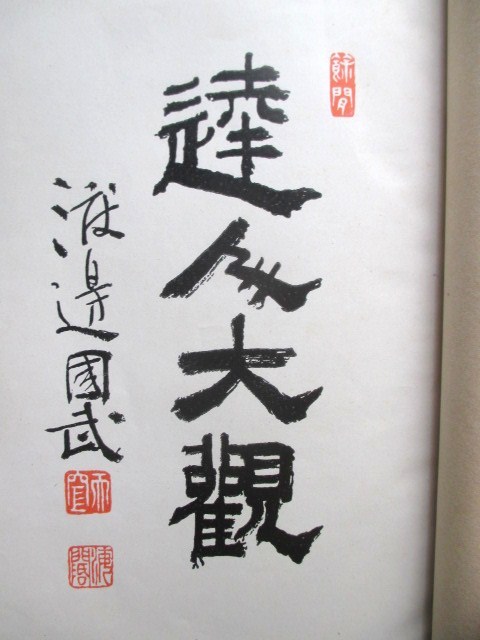 達人大觀
渡邊國武